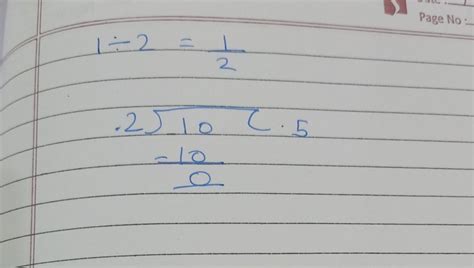 Page No :
1 ÷ 2 = 1/2
.2) 10 ( .5
-10
0